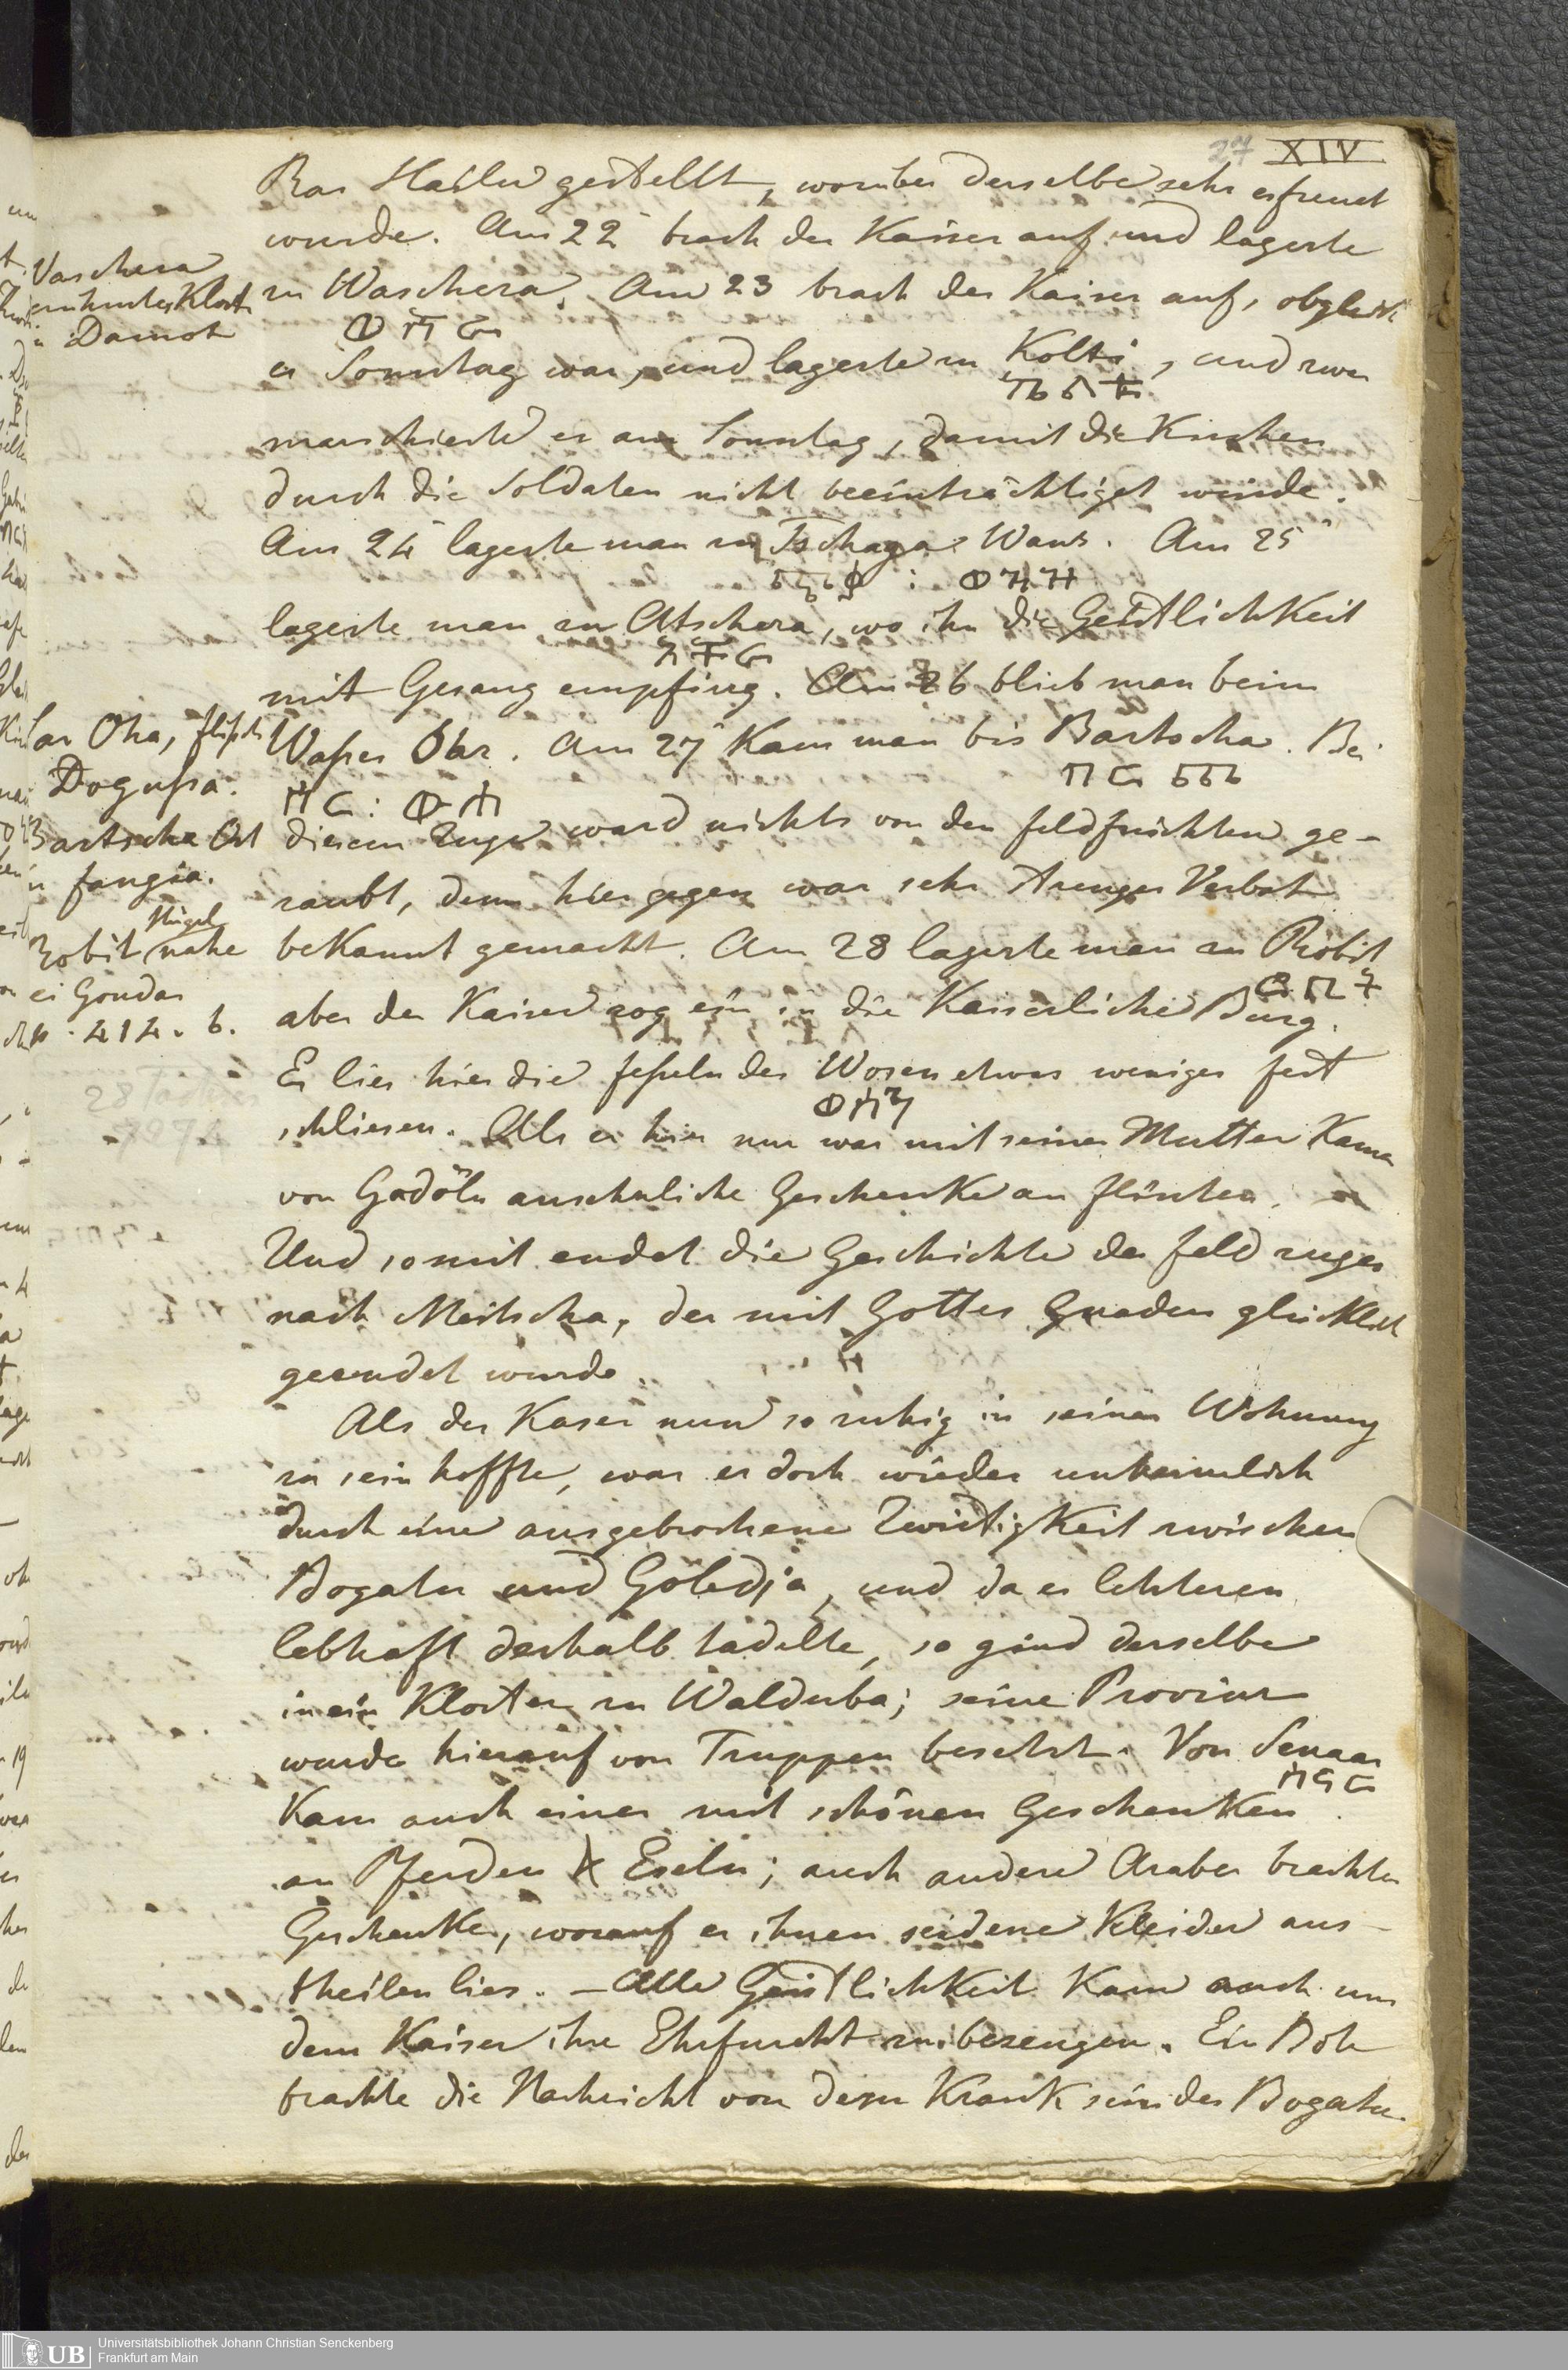 27 XIV
Ras Hailu gestellt, worüber derselbe sehr erfreut
wurde. Am 22 brach der Kaiser auf und lagerte
zu Waschera. Am 23 brach der Kaiser auf, obgleich
ዋሸራ
es Sonntag war, und lagerte zu Kolti, und zwar
marschierte er am Sonntag, damit die Kirchen
durch die Soldaten nicht beeinträchtiget würde.
Am 24 lagerte man zu Tschaga Wans. Am 25
lagerte man zu Atschera, wo ihn die Geistlichkeit
mit Gesang empfing. Am 26 blieb man beim
Waßer Ohr. Am 27 Kam man bis Bartscha. Bei
diesem Zuge ward nichts von den feldfrüchten ge-
raubt, denn hiergegen war sehr strenges Verbot
beKannt gemacht. Am 28 lagerte man zu Robit
aber der Kaiser zog ein in die Kaiserliche Burg.
Er lies hier die feßeln des Wosen etwas weniger fest
schliesen. Als er hier nun war mit seiner Mutter Kamen
von Godöln ansehnliche Geschenke an flinten.
Und somit endet die Geschichte des feldzuges
nach Meitscha, der mit Gottes Gnaden glücklich
geendet wurde.
Als der Kaser nun so ruhig in seiner Wohnung
zu sein hoffte, war er doch wieder unheimlich
durch eine ausgebrochene ZwistigKeit zwischen
Bogatu und Goledja, und da er letzteren
lebhaft deshalb tadelte, so gind derselbe
in ein Kloster zu Walduba; seine Provinz
wurde hierauf von Truppen besetzt. Von Senaar
ሰናር
Kam auch einer mit schönen Geschenken
an Pferden & Eseln; auch andere Araber brachten
Geschenke, worauf er ihnen seidene Kleider aus-
theilen lies. – Alle GeistlichKeit Kam auch um
dem Kaiser ihre Ehrfurcht zu bezeugen. Ein Bote
brachte die Nachricht von dem KrankseindesBogatu.
Vaschera
Damot
Dogußa.
Bartscha Ort
fangia.
Hügel
Robit nahe
ei Gondar
p. 414. b.
UB Universitätsbibliothek Johann Christian Senckenberg
Frankfurt am Main